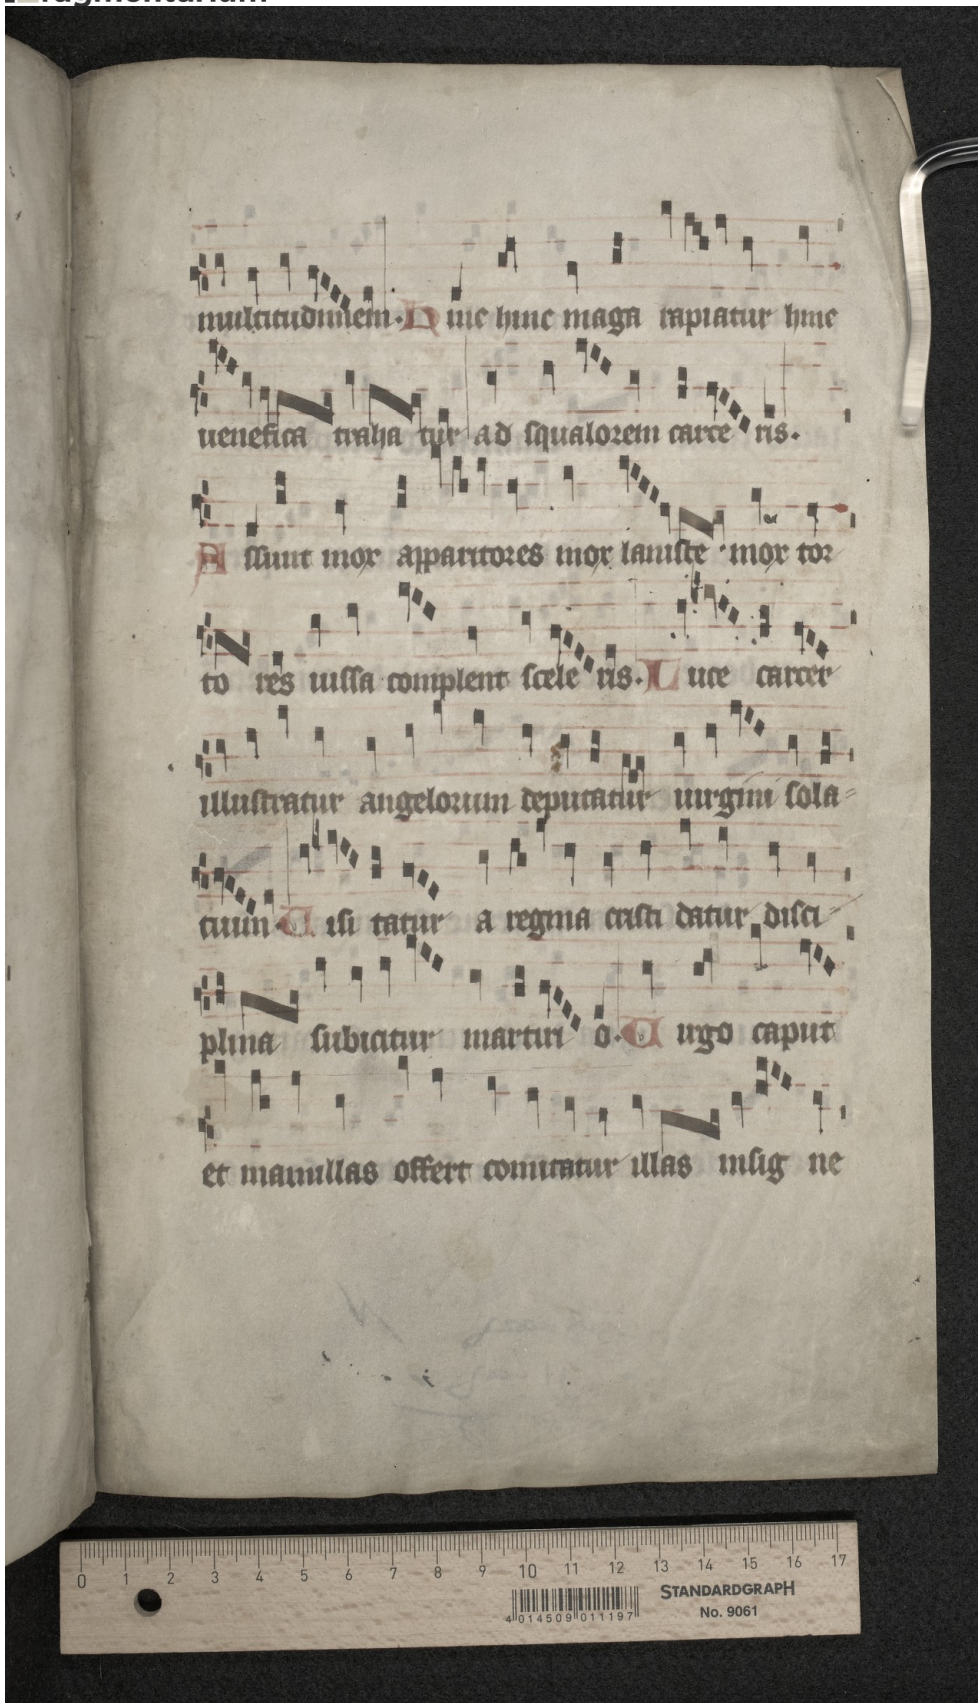 Fragmentarium
multitudinem. Huic hinc maga rapiatur hinc
uenefica traha tur ad squalorem carce ris.
A ssunt mox apparitores mox laniste mox tor
to res iussa complent scele ris. L uce carcer
illustratur angelorum deputatur uirgini sola
tium. U isi tatur a regina cristi datur disci
plina subicitur martiri o. U irgo caput
et mamillas offert comitatur illas insig ne
0 1 2 3 4 5 6 7 8 9 10 11 12 13 14 15 16 17
STANDARDGRAPH
No. 9061
4 014509 011197